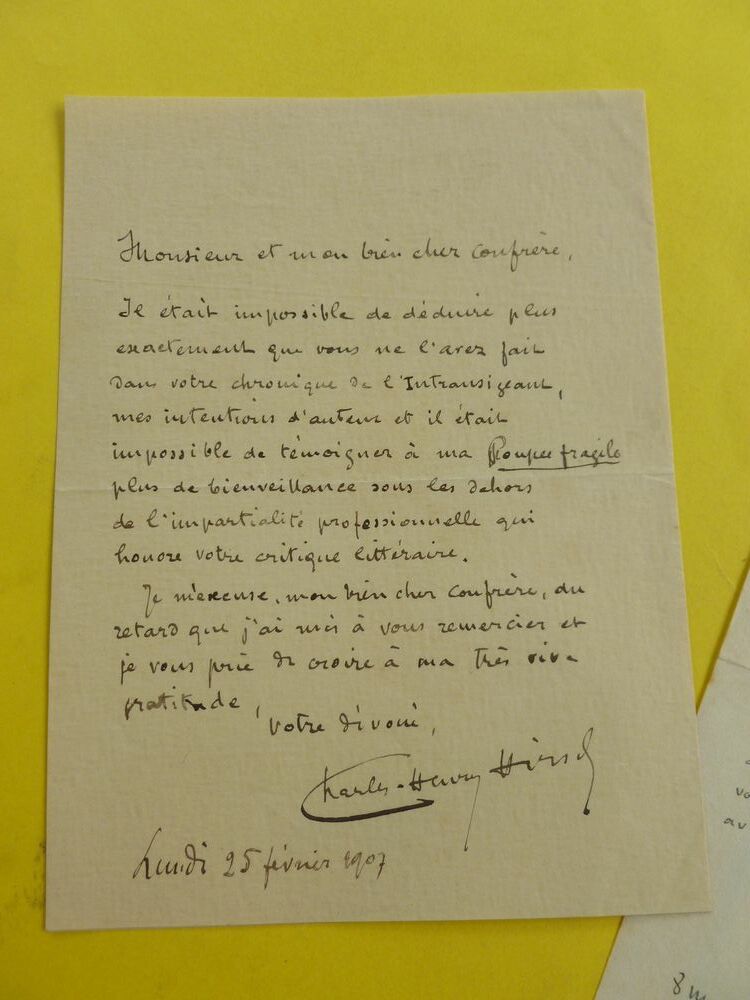 Monsieur et mon bien cher confrère,
Il était impossible de déduire plus
exactement que vous ne l'avez fait
dans votre chronique de l'Intransigeant,
mes intentions d'auteur et il était
impossible de témoigner à ma Poupée fragile
plus de bienveillance sous les dehors
de l'impartialité professionnelle qui
honore votre critique littéraire.
Je m'excuse, mon bien cher confrère, du
retard que j'ai mis à vous remercier et
je vous prie de croire à ma très vive
gratitude,
votre dévoué,
Charles-Henry Hirsch
Lundi 25 février 1907
vo
av
8 m